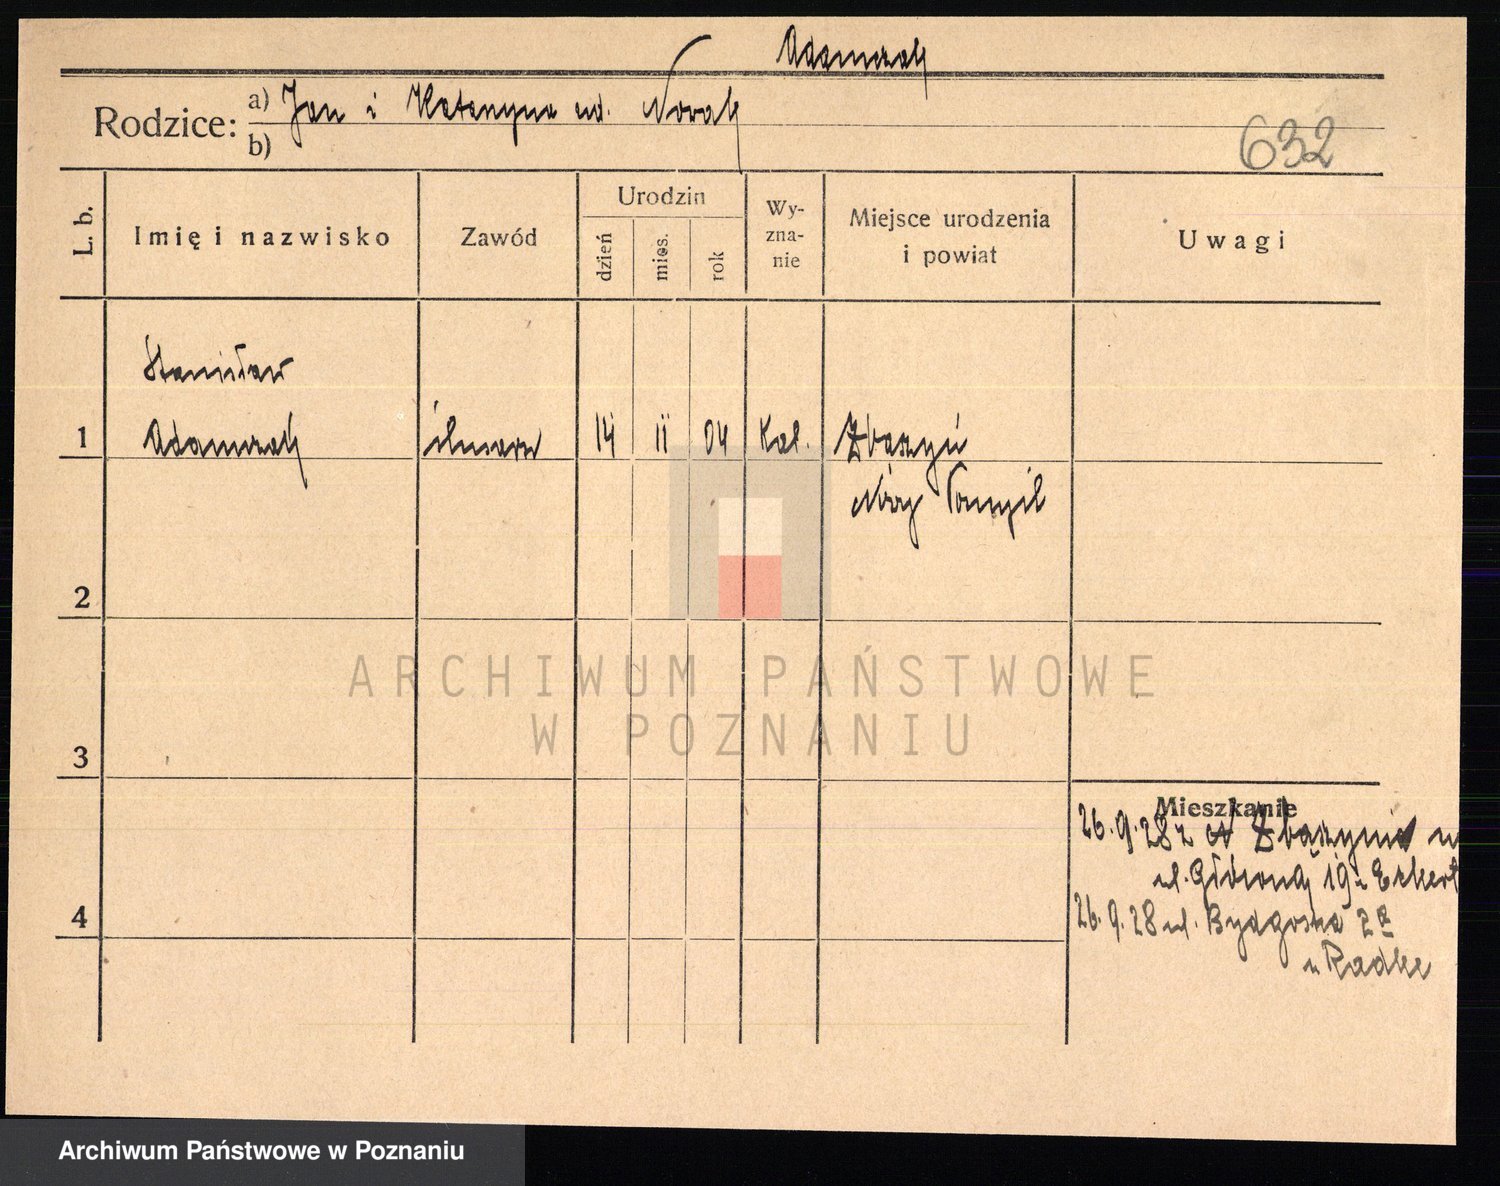 Adamczak
Rodzice: a) Jan i Katarzyna ur. Nowak
b)
632
L. b.
Imię i nazwisko
Zawód
Urodzin
dzień
mies.
rok
Wy-
zna-
nie
Miejsce urodzenia
i powiat
Uwagi
Stanisław
1 Adamczak ślusarz 14 II 04 Kat. Zbąszyń
Nowy Tomyśl
2
3
4
Mieszkanie
26.9.28 z Zbąszynia
ul. Główna 19
26.9.28 ul. Bydgoska 2a
u Radke
ARCHIWUM PAŃSTWOWE
W POZNANIU
Archiwum Państwowe w Poznaniu